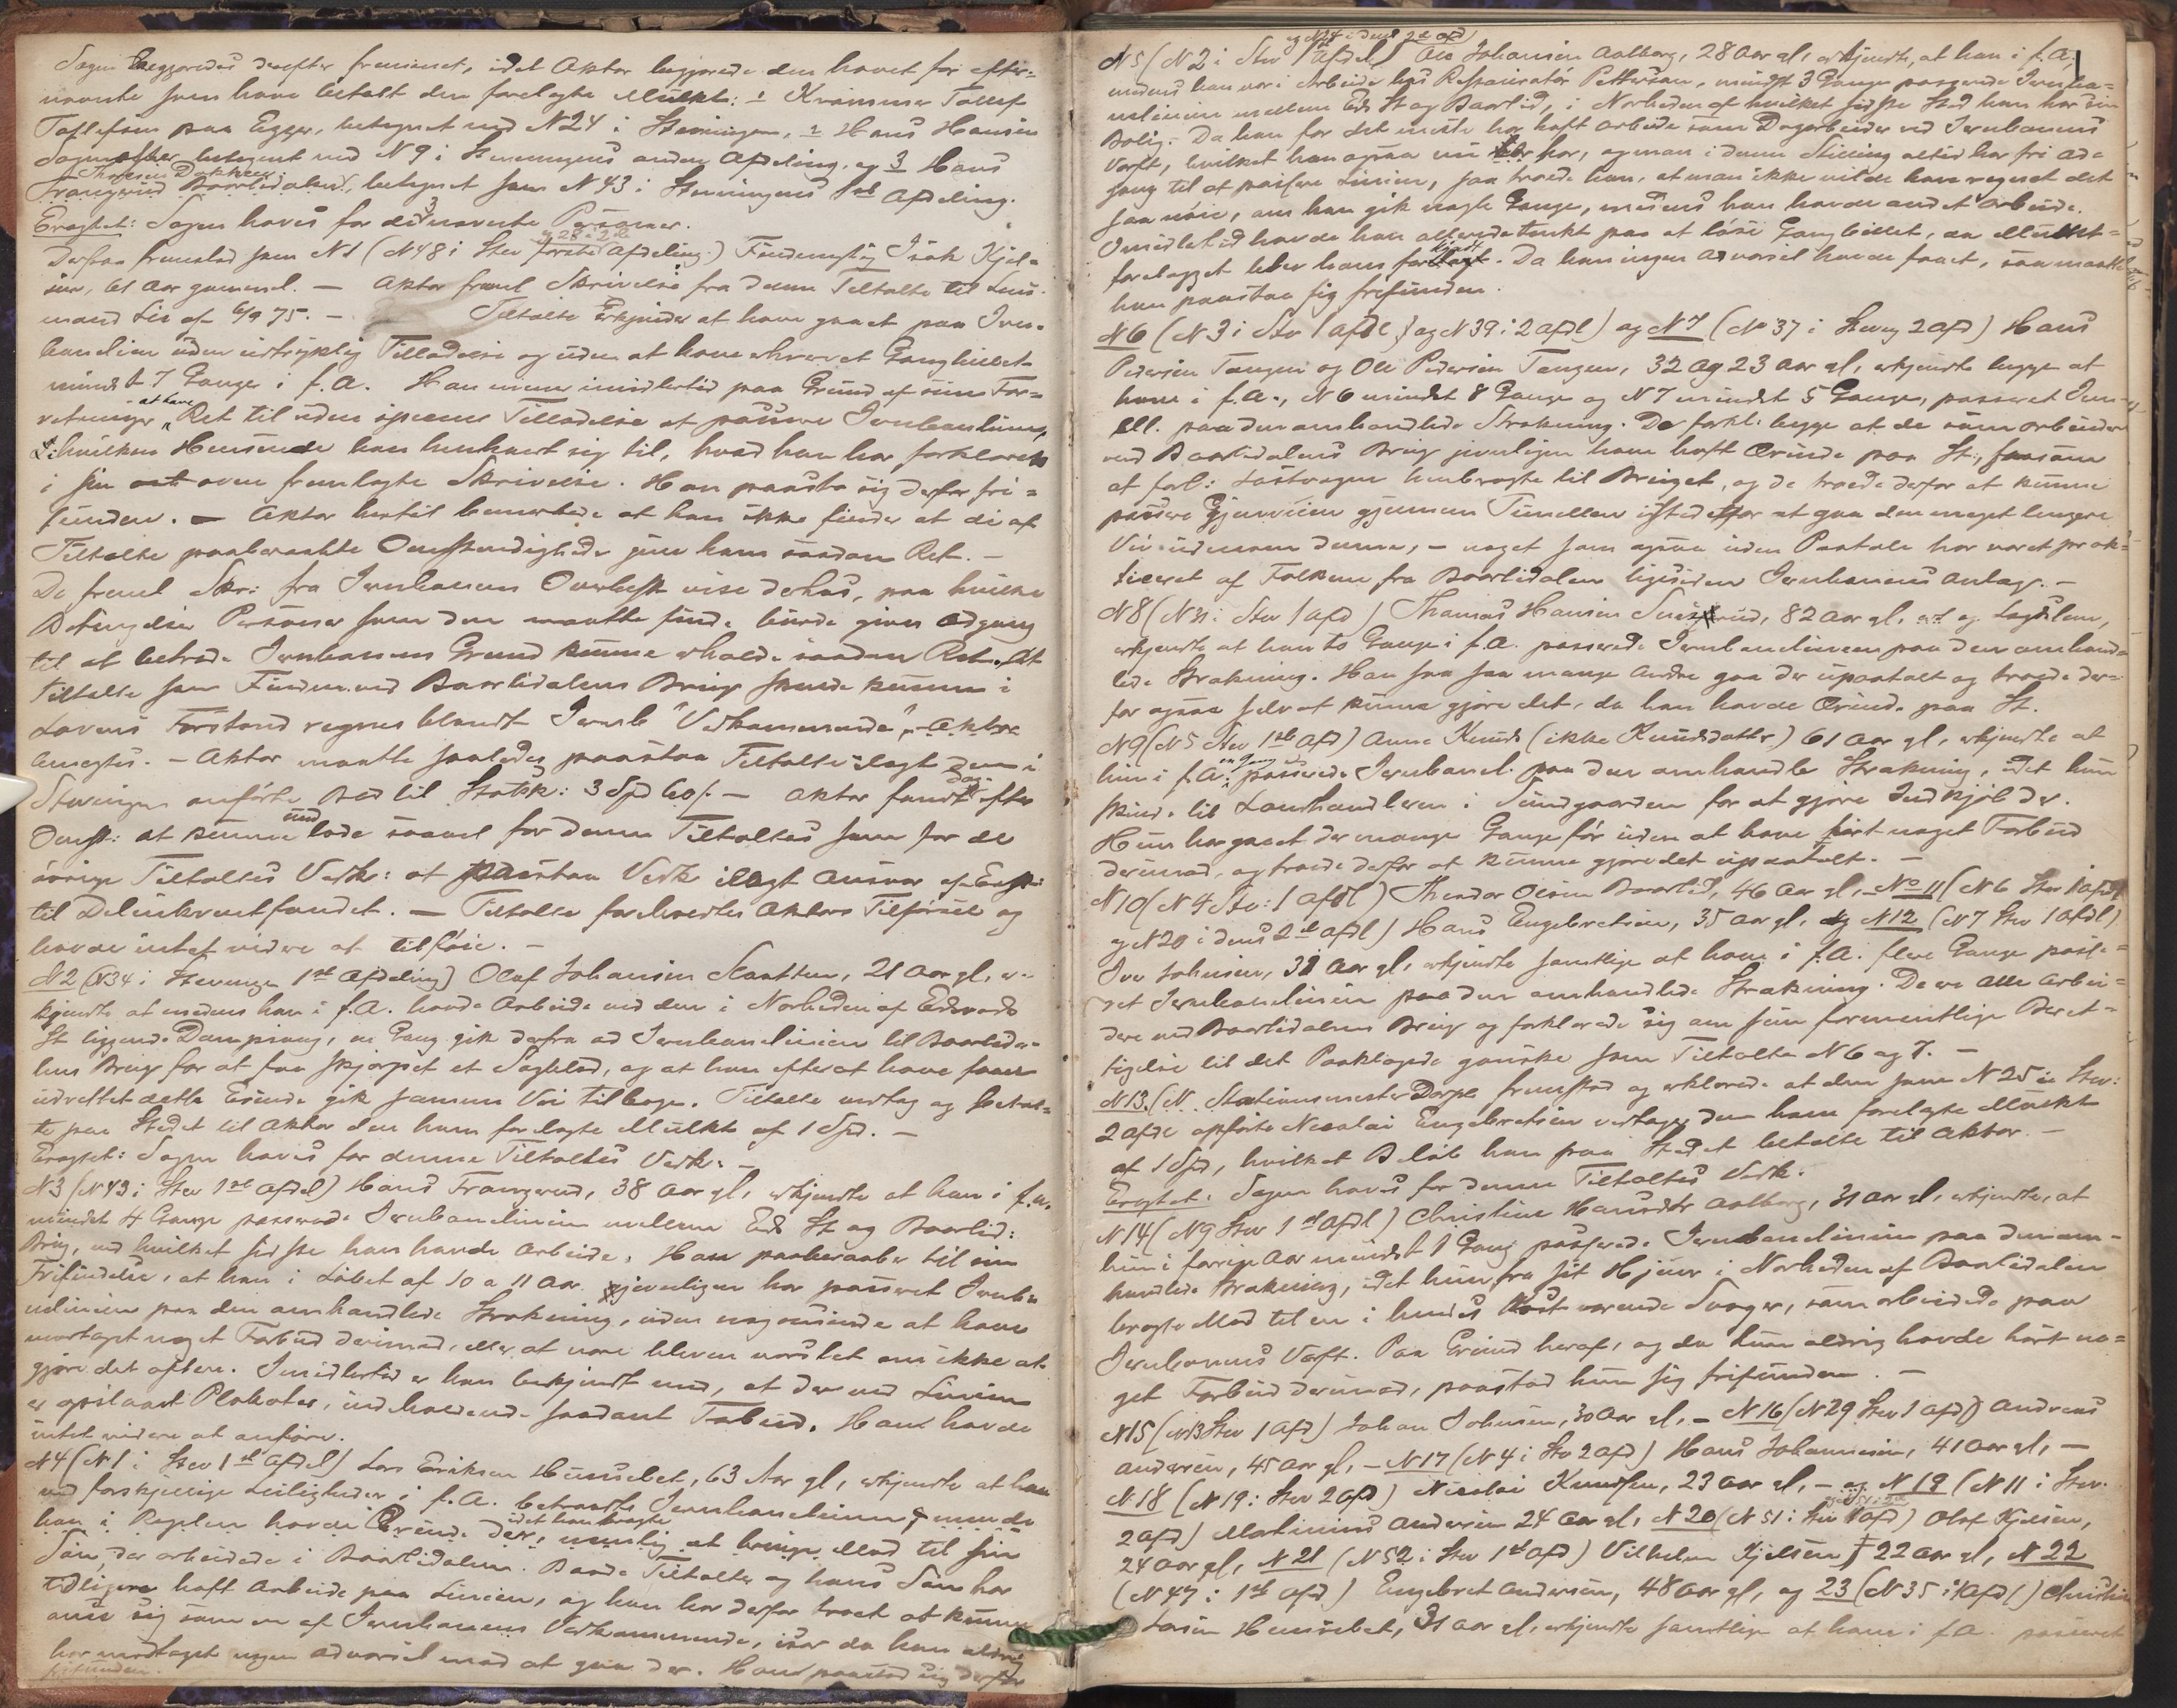 Sagen begjæredes derefter fremmet, idet Aktor begjærede den hævet for efter-
nævnte som have betalt den forelagte Mulkt: 1 Kræmmer Tollef
Toflefsen paa Egger, betegnet med N 24 i Stevningen, 2 Hans Hansen
betegnet med N 9 i Stevningens anden Afdeling, og 3 Hans
Thoresen
Frangerud Baarlidalen, betegnet som N 43 i Stevningens 1ste Afdeling.
Eragtet: Sagen hæves for de 3 nævnte Personer.
Derpaa fremstod som N 1 (N 48 i Stev første Afdeling.) Isak Kjel-
sen, 61 Aar gammel. — Aktor freml Skrivelse fra denne Tiltalte til Lens-
mand Lie af 6/9 75. — Tiltalte Erkjender at have gaaet paa Jern-
banelinien uden udtrykkelig Tilladelse og uden at have erhvervet Gangbillet
mindst 7 Gange i f. A. Han mener imidlertid paa Grund af sine For-
retninger at have Ret til uden speciel Tilladelse at passere Jernbanelinien,
i hvilken Henseende han henholdt sig til, hvad han har forklaret
i sin oven fremlagte Skrivelse. Han paastod sig derfor fri-
funden. — Aktor hertil bemærkede at han ikke finder at de af
Tiltalte paaberaabte Omstændigheder give ham saadan Ret. —
De freml Skr: fra Jernbanens Overbest vise derhos, paa hvilke
Betingelser Personer som den maatte finde burde gives Adgang
til at betræde Jernbanens Grund kunne erholde saadan Ret. At
Tiltalte som ved Baarlidalens Brug skulde kunne i
Lovens Forstand regnes blandt Jernb "Vedkommende", Aktor
benegtes. — Aktor maatte saaledes paastaa Tiltalte ilagt den i
Stevningen anførte Bod til Statsk: 3 Spd 60 s. — Aktor fandt efter
Omst: at kunne undlade saavel for denne Tiltaltes som for de
øvrige Tiltaltes Vedk: at paastaa Vedk ilagt Ansvar af
til Delinkventfondet. — Tiltalte forelæstes Aktors Tilførsel og
havde intet videre at tilføie. —
N 2 (N 34 i Stevningens 1ste Afdeling) Olaf Johansen Slaatten, 21 Aar gl, er-
kjendte at medens han i f. A. havde Arbeide ved den i Nærheden af Eidsvold
St liggende Dampsaug, en Gang gik derfra ad Jernbanelinien til Baarlida-
lens Brug for at faa skjærpet et Sagblad, og at han efter at have faaet
udrettet dette Ærinde gik samme Vei tilbage. Tiltalte vedtog og betal-
te paa Stedet til Aktor den ham forelagte Mulkt af 1 Spd. —
Eragtet: Sagen hæves for denne Tiltaltes Vedk: —
N 3 (N 43 i Stev 1ste Afdel) Hans Frangerud, 38 Aar gl, erkjendte at han i f. A.
mindst 4 Gange passerede Jernbanelinien mellem Eids St og Baarlid:
Brug, ved hvilket sidste han havde Arbeide. Han paaberaaber til sin
Frifindelse, at han i Løbet af 10 a 11 Aar jevnligen har passeret Jernba-
nelinien paa den omhandlede Strækning, uden nogensinde at have
modtaget noget Forbud derimod, eller at være bleven varslet om ikke at
gjøre det oftere. Imidlertid er han bekjendt med, at der ved Linien
er opslaaet Plakater, indholdende saadant Forbud. Han havde
intet videre at anføre.
N 4 (N 1 i Stev 1ste Afdel) Lars Eriksen Hennebet, 63 Aar gl, erkjendte at han
ved forskjellige Leiligheder i f. A. betraadte Jernbanelinien,
han i Reglen havde Ærinde der, idet han bragte Mad til sin
Søn, der arbeidede i Baarlidalen. Baade Tiltalte og hans Søn har
tidligere haft Arbeide paa Linien, og han har derfor troet at kunne
anse sig som en af Jernbanens Vedkommende, især da han aldrig
har modtaget nogen Advarsel mod at gaa der. Han paastod sig derfor
frifunden.
N 5 (N 2 i Stev 1 Afdel og N 24 i dens 2den Afd) Ole Johansen Aalborg, 28 Aar gl, erkjendte, at han i f. A.
medens han var i Arbeide hos Restauratør Pettersen, mindst 3 Gange passerede Jernba-
nelinien mellem Eids St og Baarlid, i Nærheden af hvilket sidste Sted han har sin
Bolig. Da han for det meste har haft Arbeide som Dagarbeider ved Jernbanens
Værft, hvilket han ogsaa nu har, og man i denne Stilling altid har fri Ad-
gang til at passere Linien, saa troede han, at man ikke vilde have regnet det
saa nøie, om han gik nogle Gange, medens han havde andet Arbeide.
Imidlertid havde han allerede tænkt paa at løse Gangbillet, da Mulkt-
forelægget blev ham forkyndt. Da han ingen Advarsel havde faaet, saa maatte
han paastaa sig frifunden.
N 6 (N 3 i Stv 1 Afdl, og N 39 i 2 Afdl) og N 7 (No 37 i Stevng 2 Afd) Hans
Pedersen Tangen og Ole Pedersen Tangen, 32 og 23 Aar gl, erkjendte begge at
have i f. A., N 6 mindst 8 Gange og N 7 mindst 5 Gange, passeret Jern-
bl. paa den omhandlede Strækning. De forkl: begge at de som Arbeidere
ved Baarlidalens Brug jevnligen have haft Ærinde paa St: saasom
at forl: Lastvogne henbragte til Bruget, og de troede derfor at kunne
passere Gjenveien gjennem Tunnellen istedetfor at gaa den meget længere
Vei udenom denne, — noget som ogsaa uden Paatale har været prak-
ticeret af Folkene fra Baarlidalen ligesiden Jernbanens Anlæg. —
N 8 (N 31 i Stev 1 Afd) Thomas Hansen , 82 Aar gl, og Lægdslem,
erkjendte at han to Gange i f. A. passerede Jernbanelinien paa den omhand-
lede Strækning. Han saa saa mange Andre gaa der upaatalt og troede der-
for ogsaa selv at kunne gjøre det, da han havde Ærinde paa St.
N 9 (N 5 Stev 1ste Afd) Anne Knuds (ikke Knudsdatter) 61 Aar gl, erkjendte at
hun i f. A. en Gang passerede Jernbanel. paa den omhandle Strækning, idet hun
skulde til Landhandleren i Sundgaarden for at gjøre Indkjøb der.
Hun har gaaet der mange Gange før uden at have hørt noget Forbud
derimod, og troede derfor at kunne gjøre det upaatalt. —
N 10 (N 4 Stv: 1 Afdl) Theodor Olsen Baarlid, 46 Aar gl, No 11 (N 6 Stev 1 Afdl
og N 20 i dens 2den Afdl) Hans Engebretsen, 35 Aar gl, og N 12 (N 7 Stev 1 Afdl)
Iver Johnsen, 31 Aar gl, erkjendte samtlige at have i f. A. flere Gange passe-
ret Jernbanelinien paa den omhandlede Strækning. De ere alle Arbei-
dere ved Baarlidalens Brug og forklarede sig om sin formentlige Beret-
tigelse til det Paaklagede ganske som Tiltalte N 6 og 7. —
N 13. (N. Stationsmester Dorpe fremstod og erklærede at den som N 25 i Stev:
2 Afdl opførte Nicolai Engebretsen vedtager den ham forelagte Mulkt
af 1 Spd, hvilket Beløb han paa Stedet betalte til Aktor. —
Eragtet: Sagen hæves for denne Tiltaltes Vedk.
N 14 (N 9 Stev 1ste Afdl) Christine Hansdtr Aalborg, 31 Aar gl, erkjendte, at
hun i forrige Aar mindst 1 Gang passerede Jernbanelinien paa den om-
handlede Strækning, idet hun fra sit Hjem i Nærheden af Baarlidalen
bragte Mad til en i hendes Kost værende Svoger, som arbeidede paa
Jernbanens Værft. Paa Grund heraf, og da hun aldrig havde hørt no-
get Forbud derimod, paastod hun sig frifunden. —
N 15 (N 13 Stev 1 Afd) Johan Johnsen, 30 Aar gl, — N 16 (N 29 Stev 1 Afd) Andreas
Andersen, 45 Aar gl, — N 17 (N 4 i Stv 2 Afd) Hans Johannesen, 41 Aar gl, —
N 18 (N 19 i Stev 2 Afd) Nicolai Knudsen, 23 Aar gl, — og N 19 (N 11 i Stev.
2 Afd) Martinius Andersen 24 Aar gl, N 20 (N 51 i Stv 1 Afd) Olaf Kjelsen,
24 Aar gl, N 21 (N 52 i Stev 1ste Afd) Vilhelm Kjelsen, 22 Aar gl, N 22
(N 47 i 1ste Afd) Engebret Andersen, 48 Aar gl, og 23 (N 35 i 1 Afd) Christian
Larsen Hennebet, 31 Aar gl, erkjendte samtlige at have i f. A. passeret